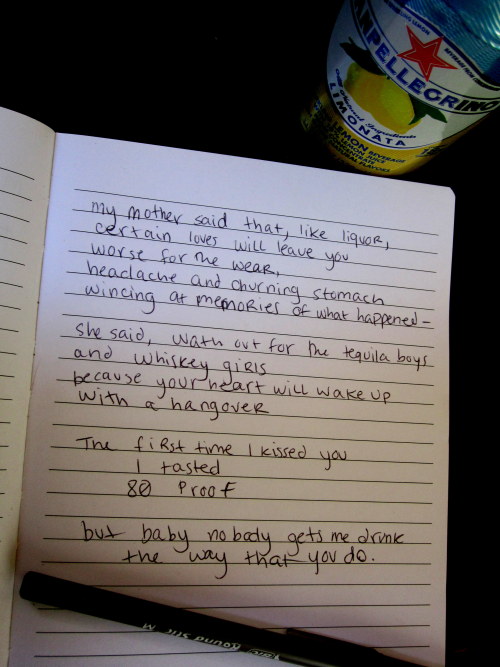 SANPELLEGRINO
LIMONATA
LEMON BEVERAGE
my mother said that, like liquor,
certain loves will leave you
worse for the wear,
headache and churning stomach
wincing at memories of what happened-
she said, wath out for the tequila boys
and whiskey girls
because your heart will wake up
with a hangover
The first time I kissed you
I tasted
80 Proof
but baby nobody gets me drunk
the way that you do.
Round Stic M